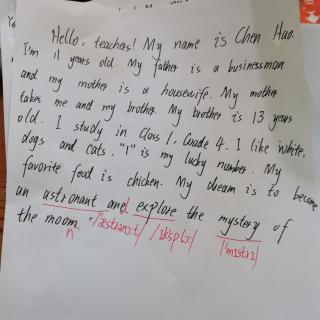 Hello, teachers! My name is Chen Hao.
I'm 11 years old. My father is a businessman
and my mother is a housewife. My mother
takes me and my brother. My brother is 13 years
old. I study in Class 1, Grade 4. I like white,
dogs and cats. "1" is my lucky number. My
favorite food is chicken. My dream is to become
an astronaut and explore the mystery of
the moom. /'æstrənɔ:t/ /ɪk'splɔ:/ /'mɪstrɪ/
n